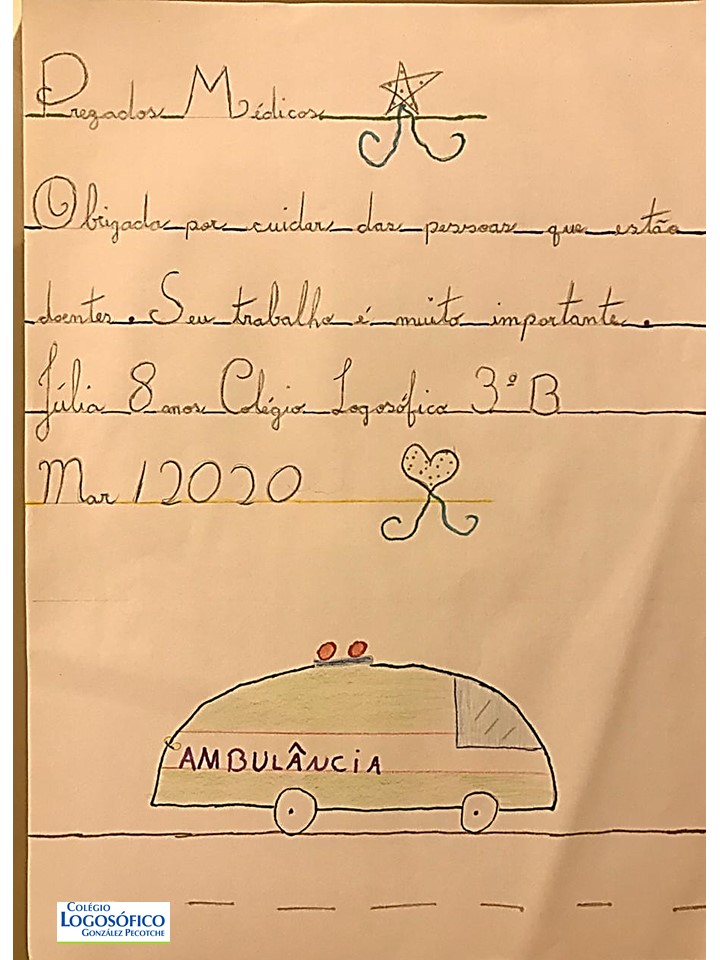 Prezados Médicos
Obrigada por cuidar das pessoas que estão
doentes. Seu trabalho é muito importante.
Júlia 8 anos Colégio Logosófico 3º B
Mar / 2020
AMBULÂNCIA
COLÉGIO
LOGOSÓFICO
GONZÁLEZ PECOTCHE